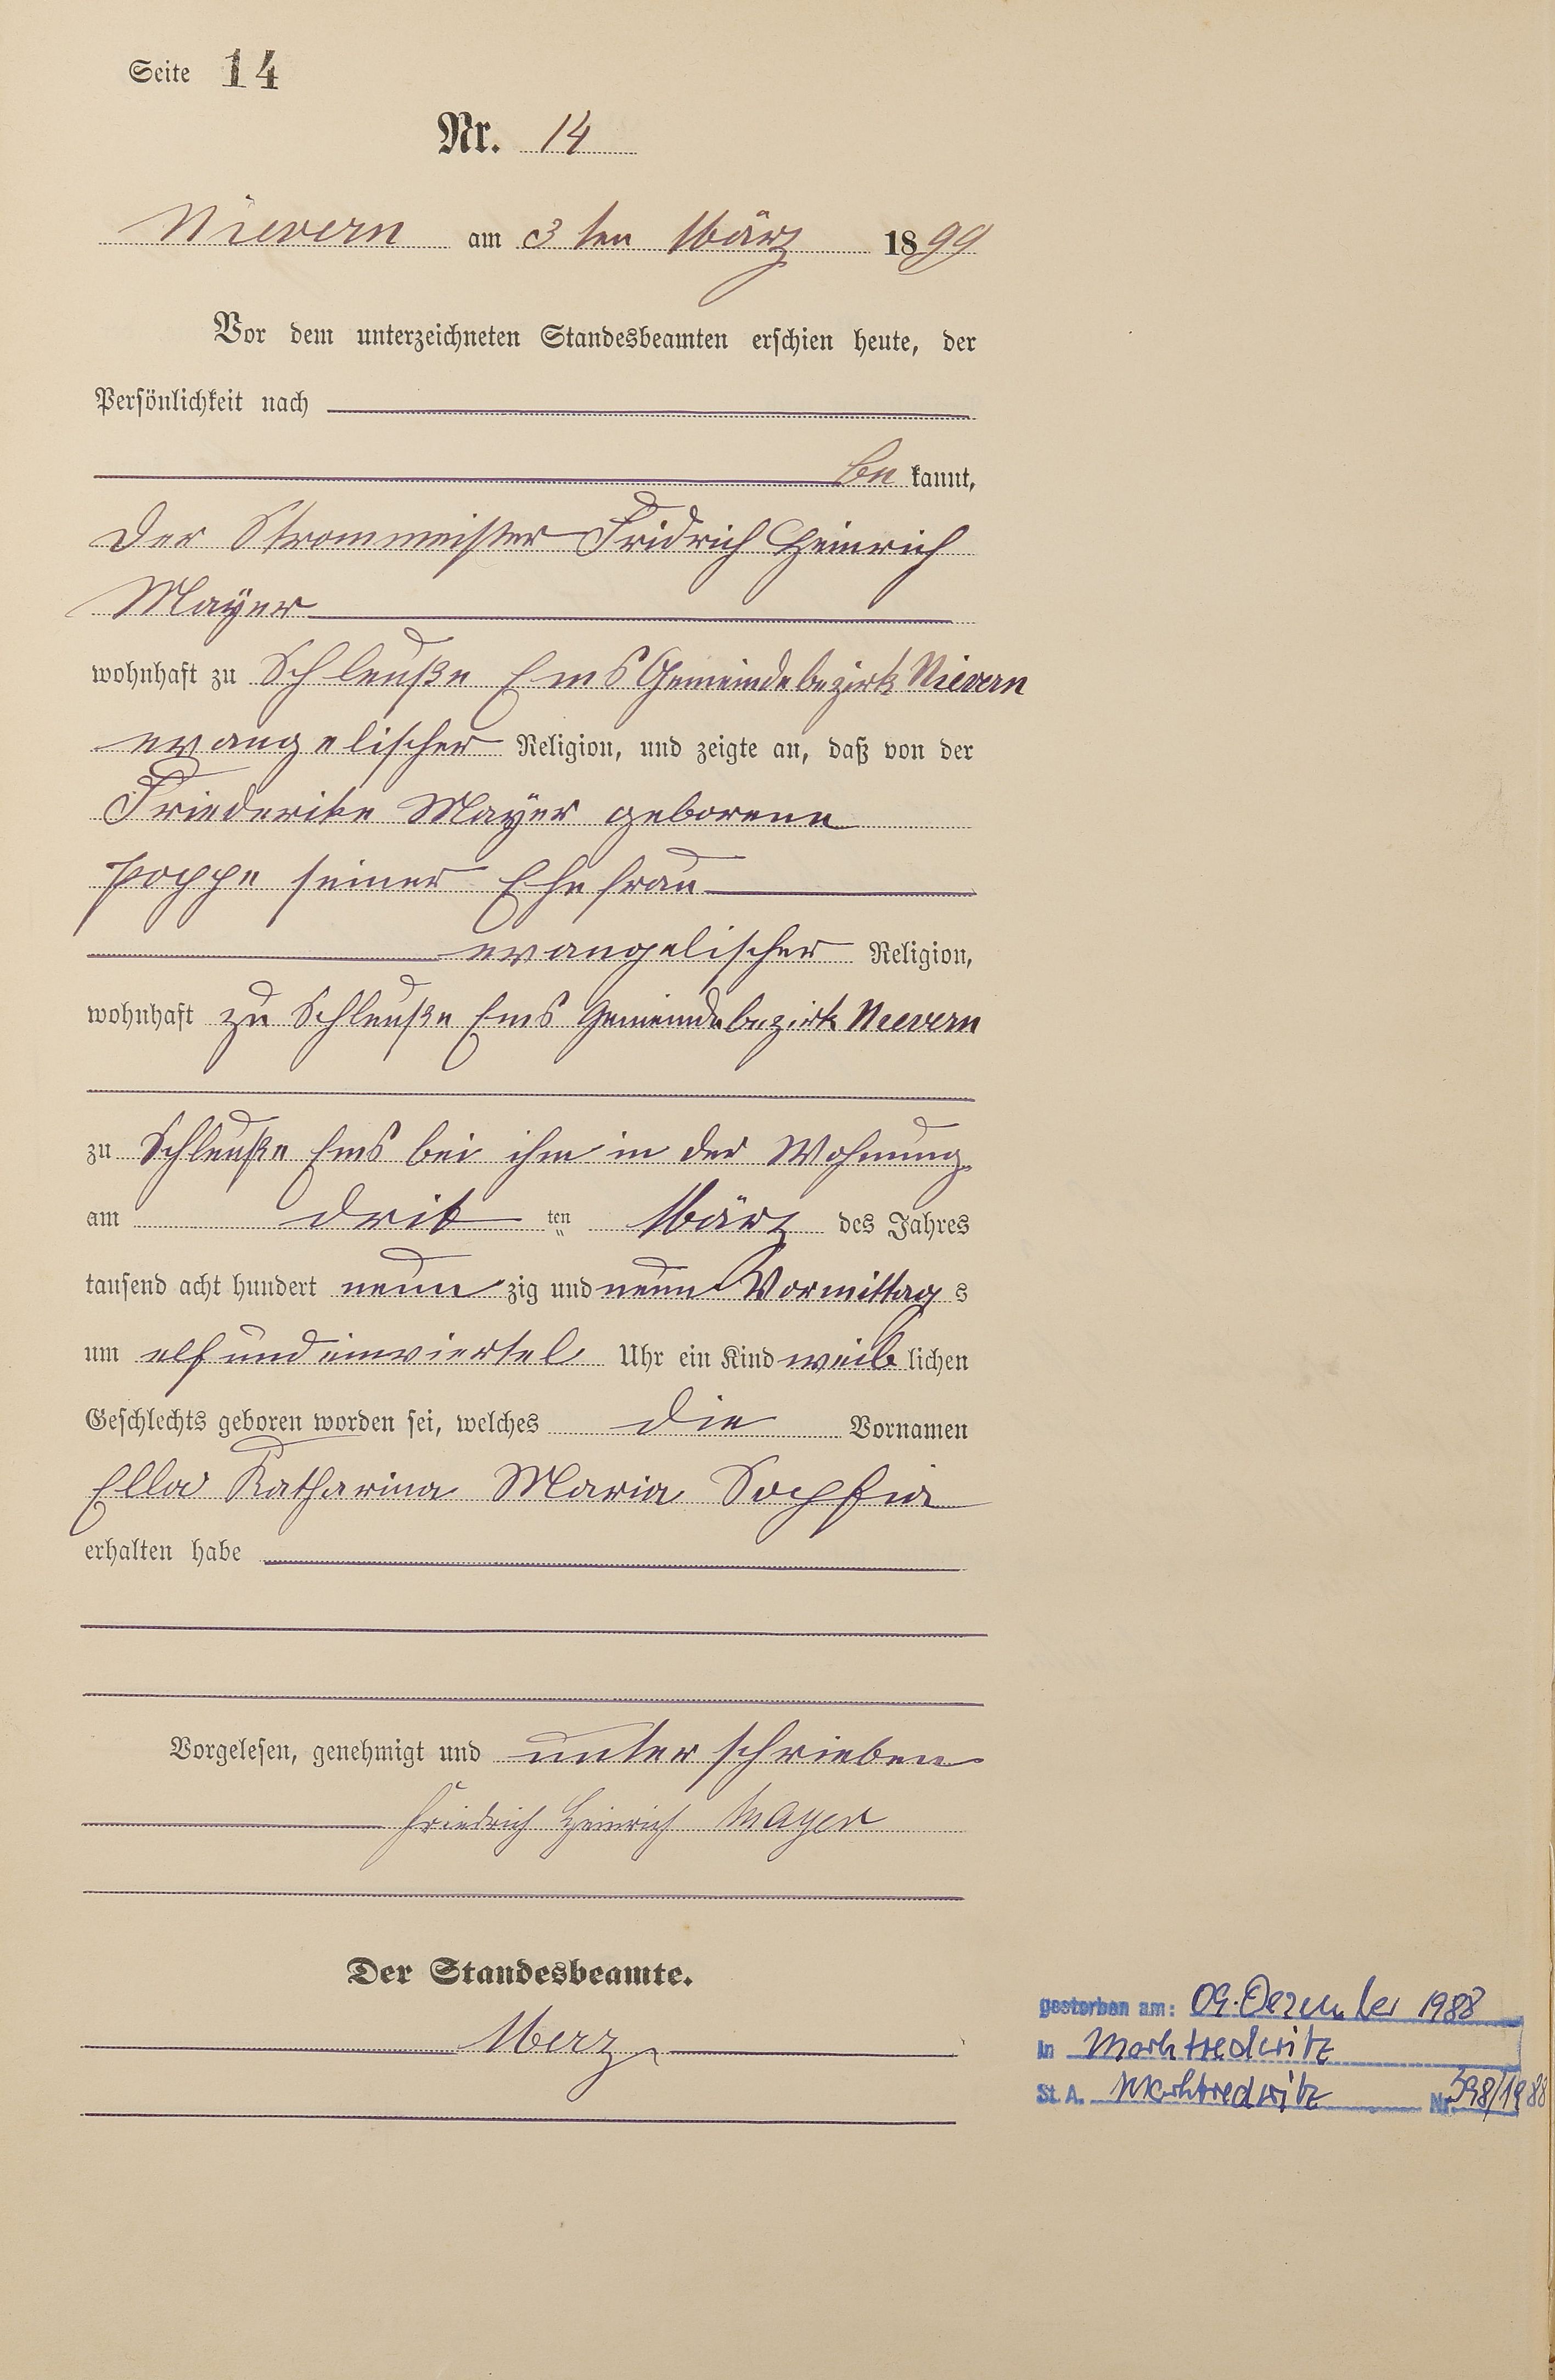 Seite 14
Nr. 14
Nievern am 3ten März 1899
Vor dem unterzeichneten Standesbeamten erschien heute, der
Persönlichkeit nach
be kannt,
der Strommeister Fridrich Heinrich
Mayer
wohnhaft zu Schleuße Ems Gemeindebezirk Nievern
evangelischer Religion, und zeigte an, daß von der
Friederike Mayer geborene
Poppe seiner Ehefrau
evangelischer Religion,
wohnhaft zu Schleuße Ems Gemeindebezirk Nievern
zu Schleuße Ems bei ihm in der Wohnung
am drit ten März des Jahres
tausend acht hundert neun zig und neun Vormittag s
um elf und einviertel Uhr ein Kind weib lichen
Geschlechts geboren worden sei, welches die Vornamen
Ella Katharina Maria Sophia
erhalten habe
Vorgelesen, genehmigt und unterschrieben
Friedrich Heinrich Mayer
Der Standesbeamte.
Merz
gestorben am: 09. Dezember 1988
in Marktredwitz
St. A. Marktredwitz Nr. 398/1988